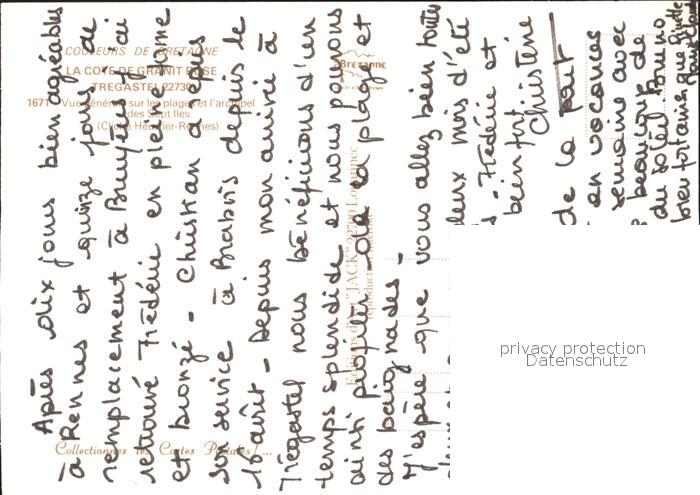 COULEURS DE BRETAGNE
LA COTE DE GRANIT ROSE
TREGASTEL 22730
1671 Vue générale sur les plages et l'archipel
des Sept Iles
(Cliché Heurtier-Rennes)
Bretagne
Editions "JACK" Louannec
Collectionnez les Cartes Postales !...
Après dix jours bien agréables
à Rennes et quinze jours de
remplacement à j'ai
retrouvé Frédéric en pleine forme
et bronzé - Christian a repris
son service à Brabois depuis le
1er août - Depuis mon arrivée à
Trégastel nous bénéficions d'un
temps splendide et nous pouvons
ainsi profiter de la plage et
des baignades -
J'espère que vous allez bien toutes
deux mois d'été
Frédéric et
bien fort
Christine
de la part
en vacances
semaine avec
beaucoup de
du soleil
bien
privacy protection
Datenschutz